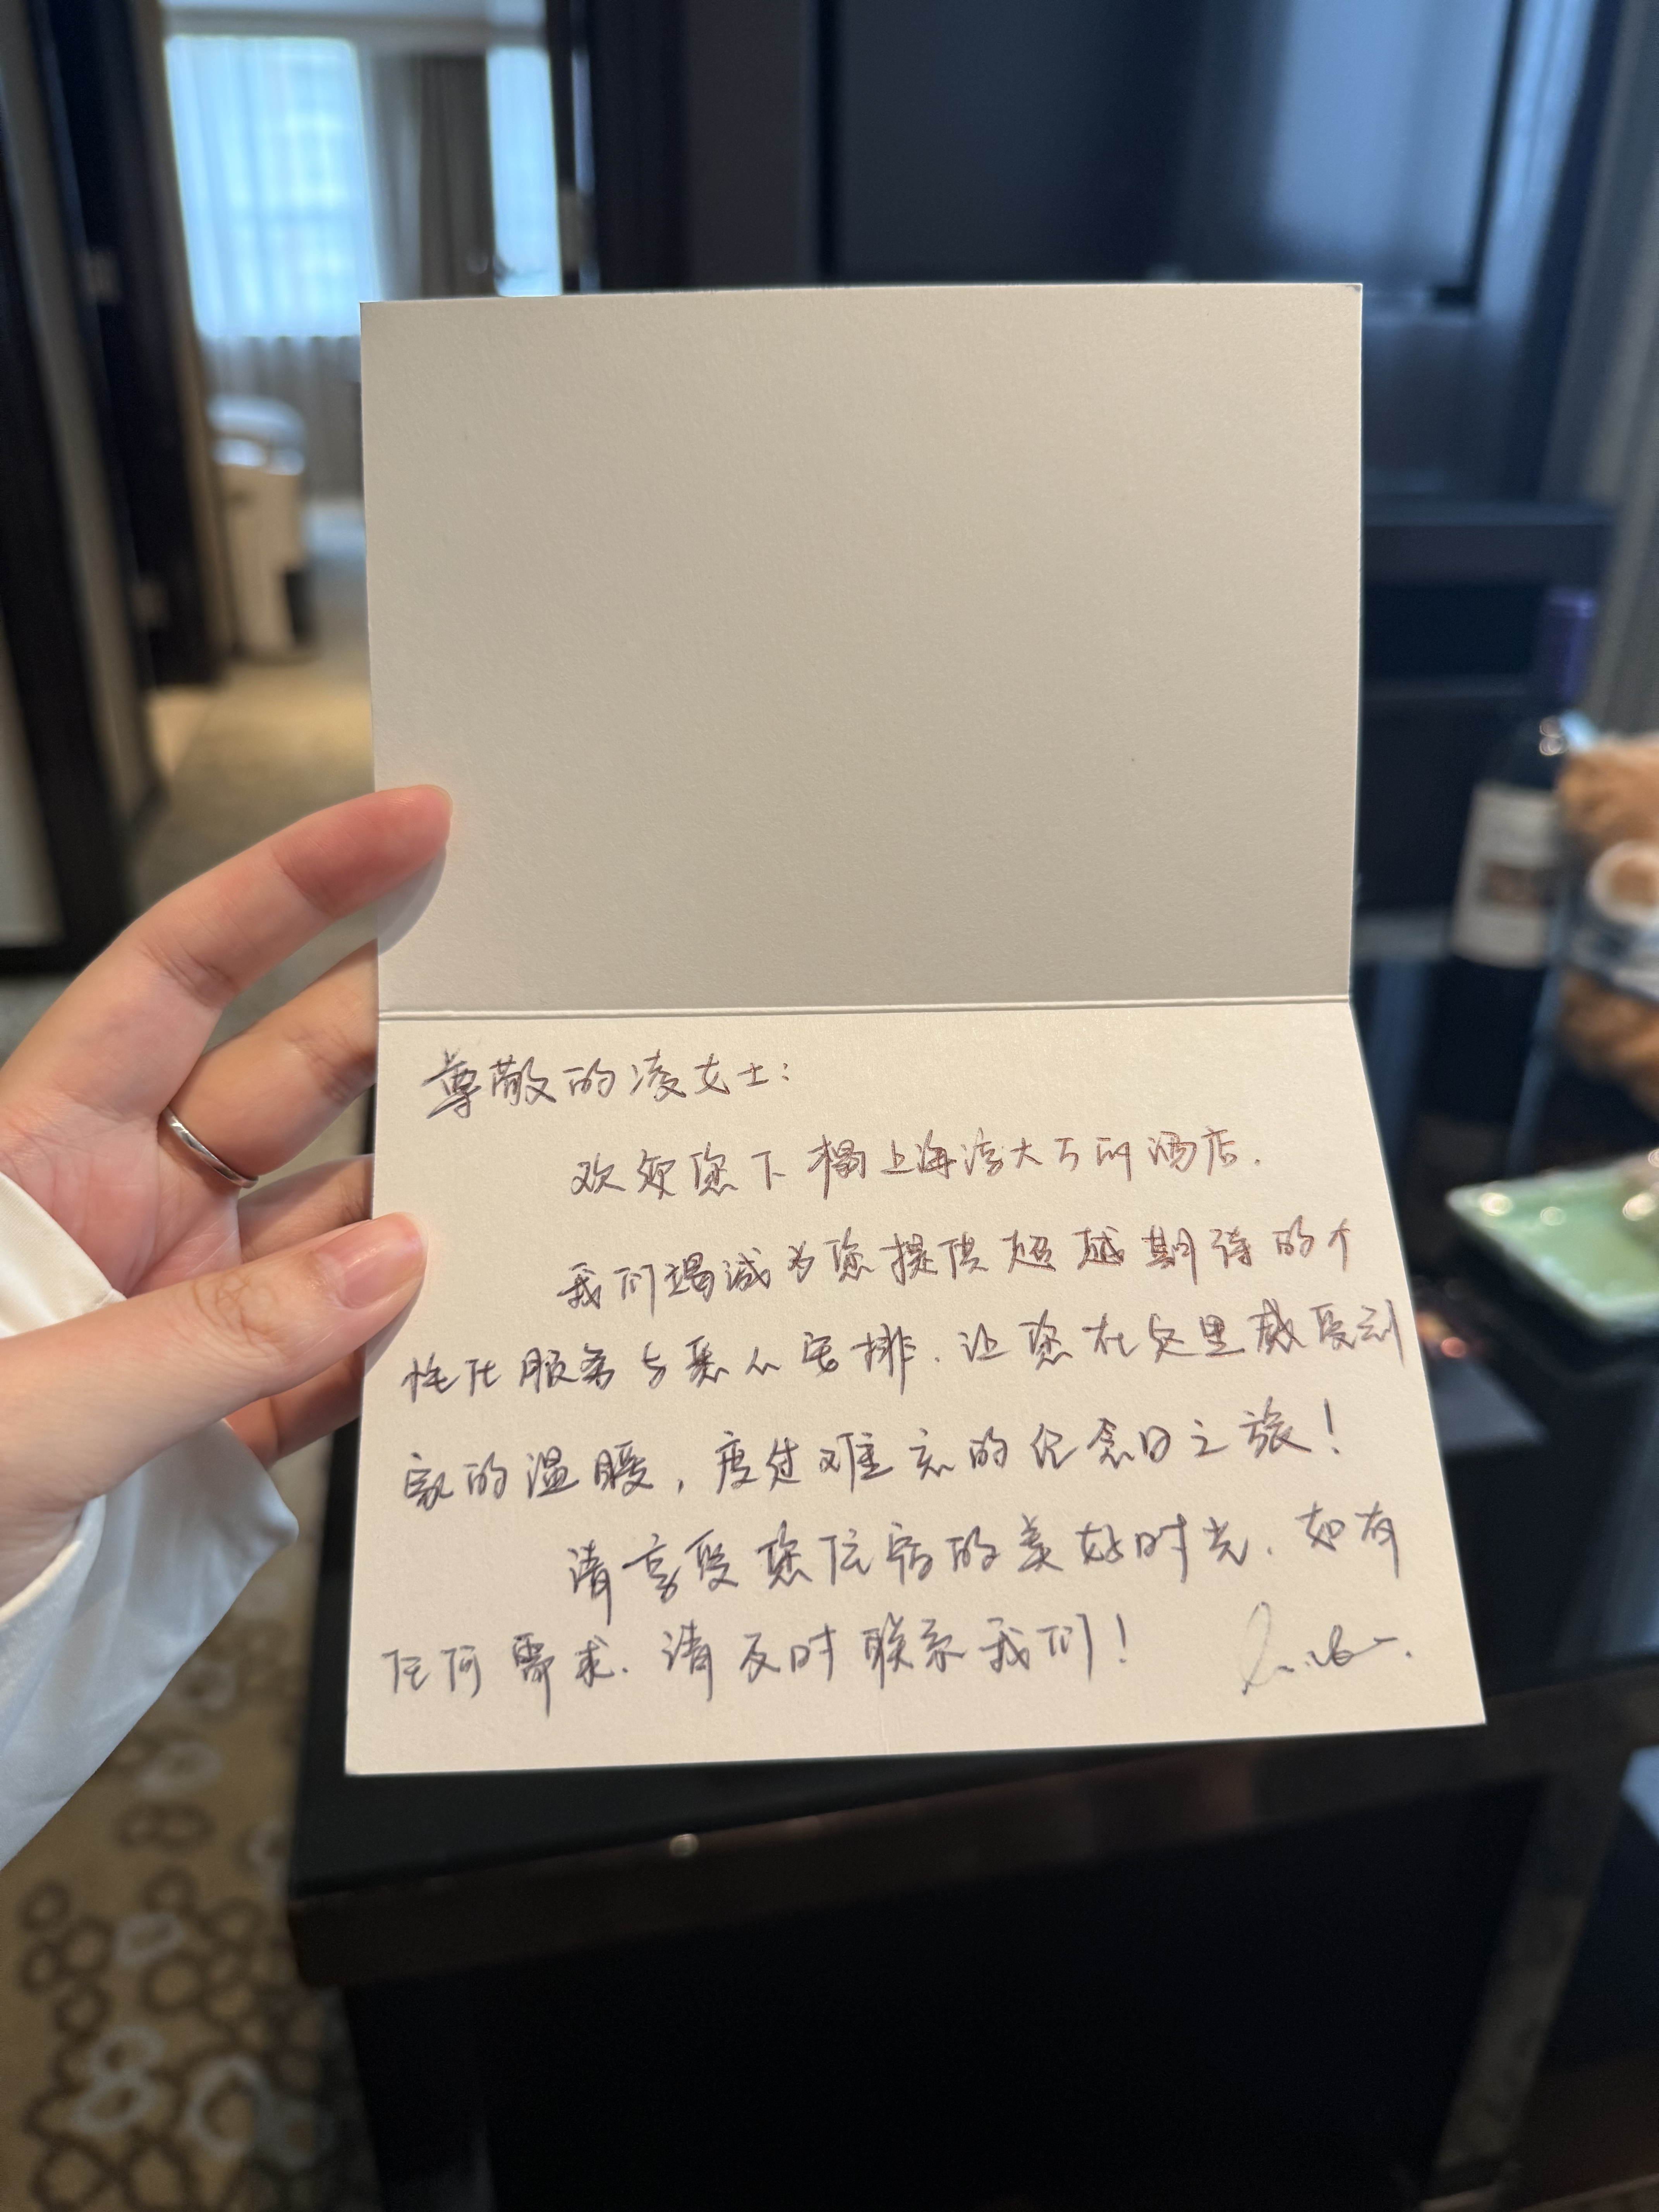 尊敬的凌女士：
欢迎您下榻上海浦大万丽酒店.
我们竭诚为您提供超越期待的个
性化服务与悉心安排.让您在这里感受到
家的温暖，度过难忘的纪念日之旅！
请享受您住宿的美好时光.如有
任何需求.请及时联系我们！